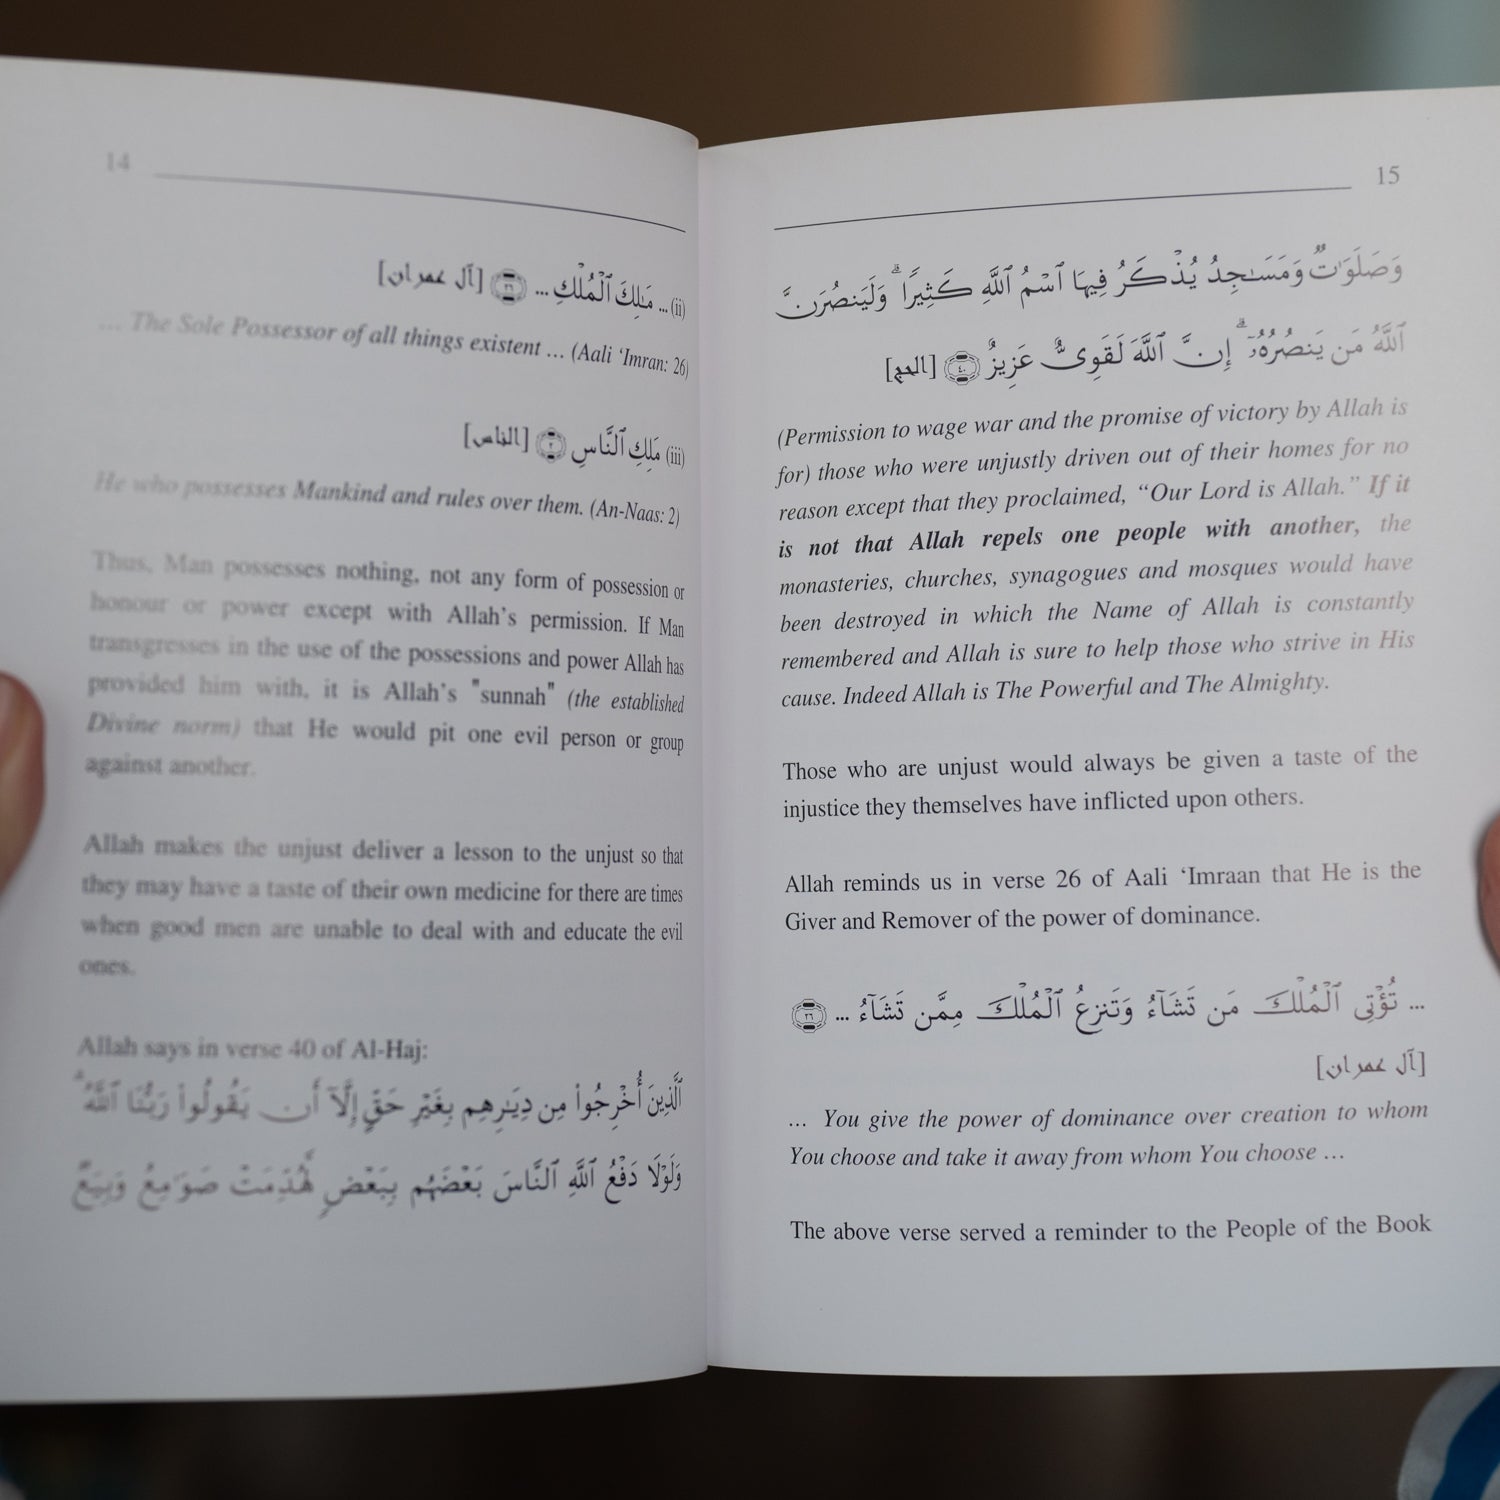 14
(ii) ... مَـٰلِكَ ٱلْمُلْكِ ... ۝٢٦ [آل عمران]
... The Sole Possessor of all things existent ... (Aali ‘Imran: 26)
(iii) مَلِكِ ٱلنَّاسِ ۝٢ [الناس]
He who possesses Mankind and rules over them. (An-Naas: 2)
Thus, Man possesses nothing, not any form of possession or
honour or power except with Allah’s permission. If Man
transgresses in the use of the possessions and power Allah has
provided him with, it is Allah’s "sunnah" (the established
Divine norm) that He would pit one evil person or group
against another.
Allah makes the unjust deliver a lesson to the unjust so that
they may have a taste of their own medicine for there are times
when good men are unable to deal with and educate the evil
ones.
Allah says in verse 40 of Al-Haj:
ٱلَّذِينَ أُخْرِجُوا۟ مِن دِيَـٰرِهِم بِغَيْرِ حَقٍّ إِلَّآ أَن يَقُولُوا۟ رَبُّنَا ٱللَّهُ ۗ
وَلَوْلَا دَفْعُ ٱللَّهِ ٱلنَّاسَ بَعْضَهُم بِبَعْضٍ لَّهُدِّمَتْ صَوَٰمِعُ وَبِيَعٌ
15
وَصَلَوَٰتٌ وَمَسَـٰجِدُ يُذْكَرُ فِيهَا ٱسْمُ ٱللَّهِ كَثِيرًا ۗ وَلَيَنصُرَنَّ
ٱللَّهُ مَن يَنصُرُهُۥٓ ۗ إِنَّ ٱللَّهَ لَقَوِىٌّ عَزِيزٌ ۝٤٠ [الحج]
(Permission to wage war and the promise of victory by Allah is
for) those who were unjustly driven out of their homes for no
reason except that they proclaimed, “Our Lord is Allah.” If it
is not that Allah repels one people with another, the
monasteries, churches, synagogues and mosques would have
been destroyed in which the Name of Allah is constantly
remembered and Allah is sure to help those who strive in His
cause. Indeed Allah is The Powerful and The Almighty.
Those who are unjust would always be given a taste of the
injustice they themselves have inflicted upon others.
Allah reminds us in verse 26 of Aali ‘Imraan that He is the
Giver and Remover of the power of dominance.
... تُؤْتِى ٱلْمُلْكَ مَن تَشَآءُ وَتَنزِعُ ٱلْمُلْكَ مِمَّن تَشَآءُ ... ۝٢٦
[آل عمران]
... You give the power of dominance over creation to whom
You choose and take it away from whom You choose ...
The above verse served a reminder to the People of the Book